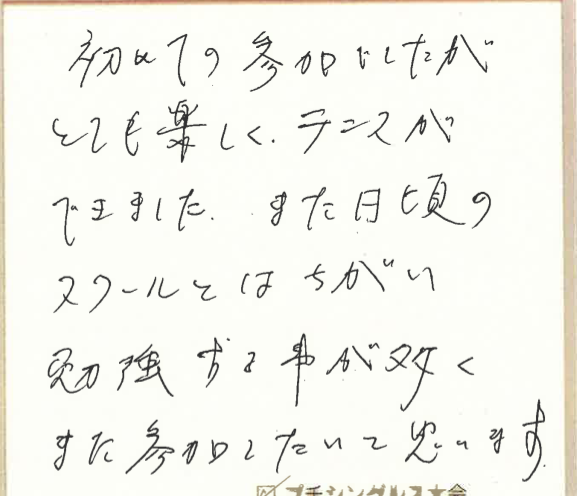 初めての参加でしたが
とても楽しく、テニスが
できました。また日頃の
スクールとはちがい
勉強する事が多く
また参加したいと思います。
プチシングルス大会